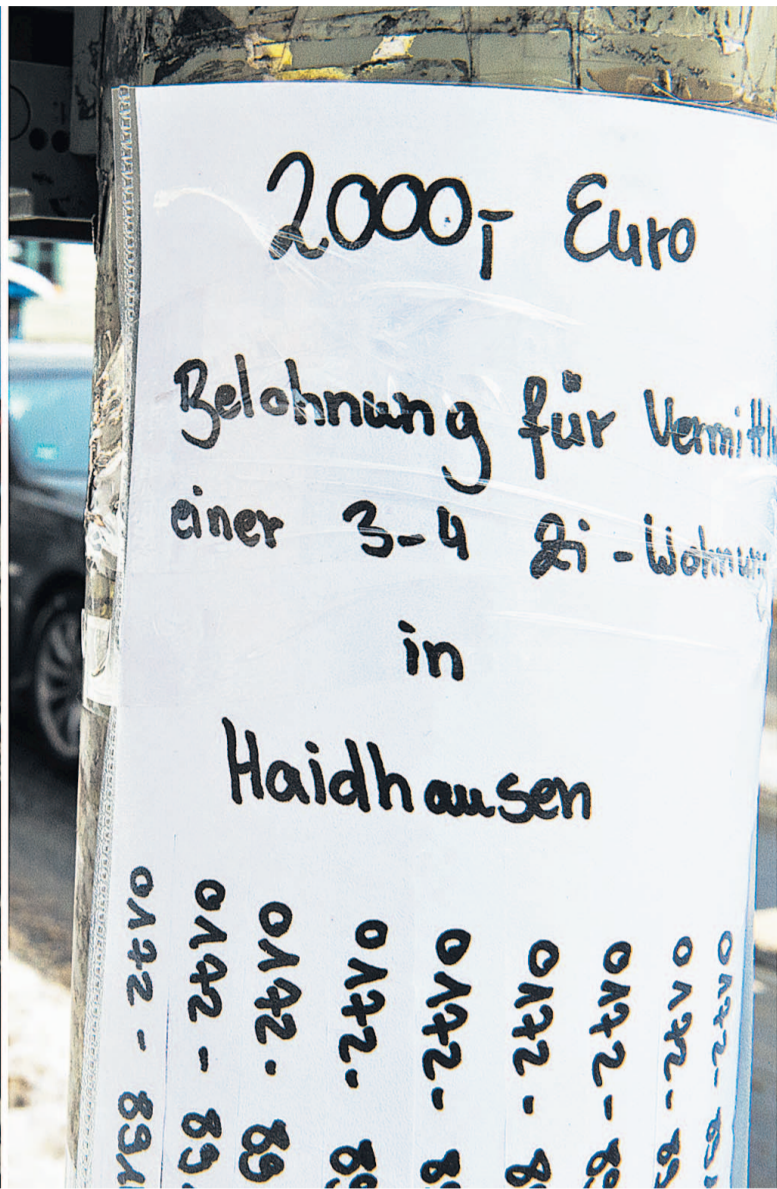 2000,- Euro
Belohnung für
einer 3-4 Zi-Wohnung
in
Haidhausen
0172 - 891
0172 - 89
0172 - 89
0172 - 8
0172 - 8
0172 - 8
0172 - 89
0172 - 89
0172 - 89